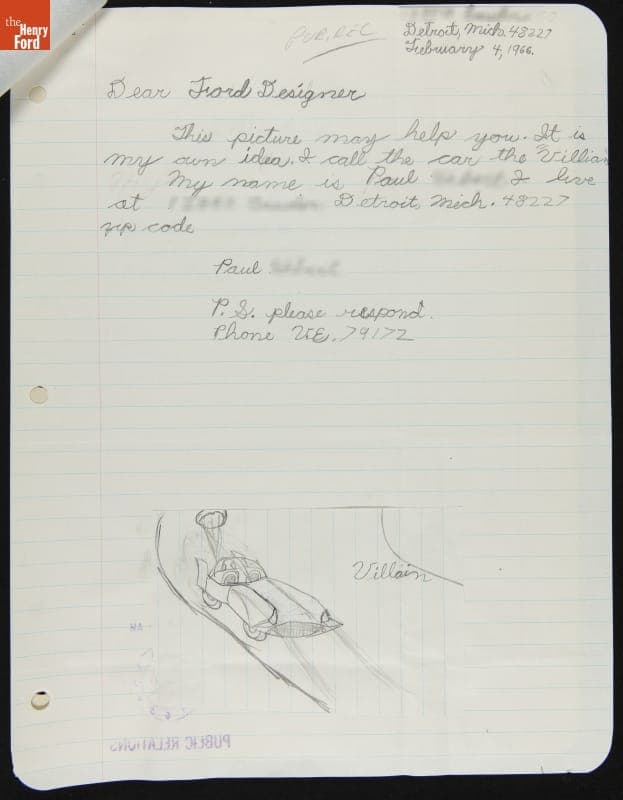 the
Henry
Ford
Detroit, Mich. 48227
February 4, 1966.
Dear Ford Designer
This picture may help you. It is
my own idea. I call the car the Villian
My name is Paul I live
at Detroit, Mich. 48227
zip code
Paul
P.S. please respond.
Phone VE. 79172
Villain
PUBLIC RELATIONS